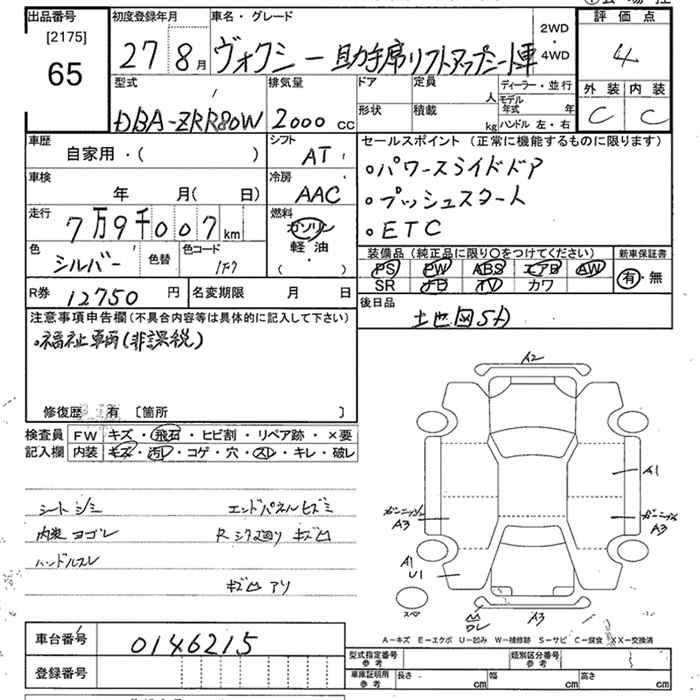 出品番号
[2175]
65
初度登録年月
27 8月
車名・グレード
ヴォクシー 助手席リフトアップシート車
2WD
・
4WD
評価点
4
外装 内装
C C
型式
DBA-ZRR80W
排気量
2000 cc
ドア
形状
定員
人
積載
kg
ディーラー・並行
モデル年式 年
ハンドル 左・右
車歴
自家用・( )
シフト
AT
車検
年 月( 日)
冷房
AAC
走行
7万9千007km
燃料
ガソリン
軽油
( )
色
シルバー
色替
色コード
1F7
R券 12750 円
名変期限 月 日
セールスポイント (正常に機能するものに限ります)
・パワースライドドア
・プッシュスタート
・ETC
装備品(純正品に限り〇をつけてください)
PS PW ABS エアB AW
SR ナビ TV カワ
新車保証書
有・無
後日品
注意事項申告欄(不具合内容等は具体的に記入して下さい)
・福祉車輌(非課税)
修復歴 有 〔箇所 〕
検査員
記入欄
FW キズ・飛石・ヒビ割・リペア跡・×要
内装 キズ・汚レ・コゲ・穴・スレ・キレ・破レ
シートシミ
内装ヨゴレ
ハンドルスレ
エンドパネルヒズミ
キズ凹アリ
A2
A1
ガーニッシュ
A3
ガーニッシュ
A3
A1
U1
スペア
凹
ワレ
A3
A-キズ E-エクボ U-凹み W-補修跡 S-サビ C-腐食 XX-交換済
車台番号
0146215
登録番号
型式指定番号
参考
類別区分番号
参考
車庫証明用
参考
長さ cm
幅 cm
高さ cm